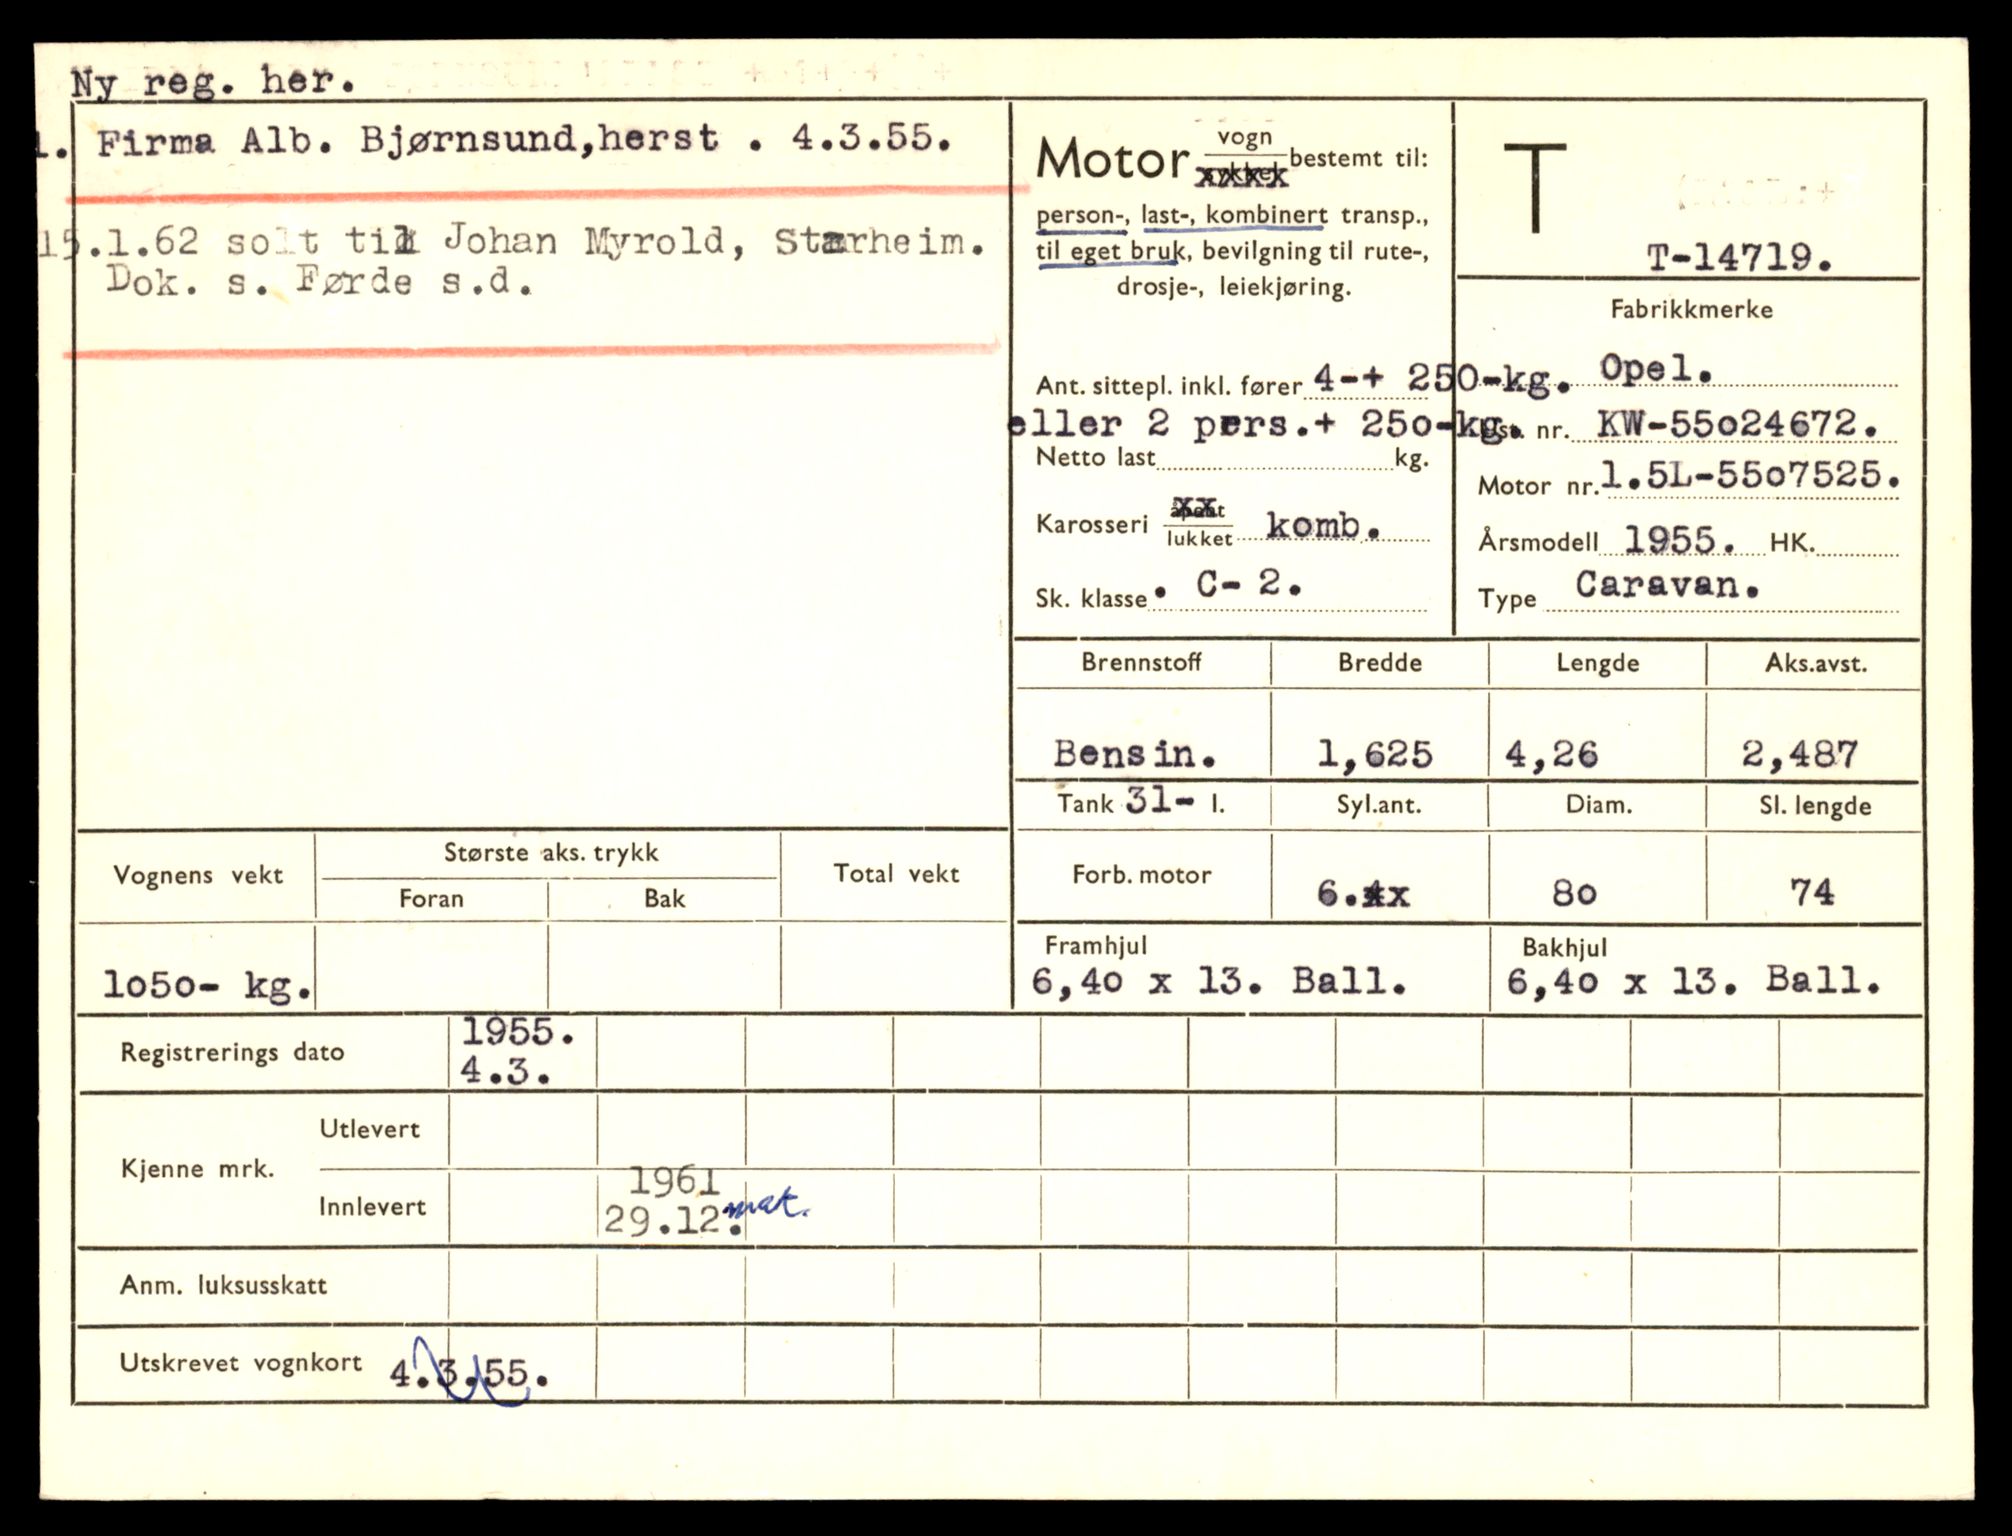 Ny reg. her.
1. Firma Alb. Bjørnsund,herst . 4.3.55.
15.1.62 solt til Johan Myrold, Starheim.
Dok. s. Førde s.d.
Motor vogn bestemt til:
person-, last-, kombinert transp.,
til eget bruk, bevilgning til rute-,
drosje-, leiekjøring.
Ant. sittepl. inkl. fører 4-+ 250-kg.
eller 2 pers.+ 25o-kg.
Netto last kg.
Karosseri åpent
lukket komb.
Sk. klasse . C- 2.
T
T-14719.
Fabrikkmerke
Opel.
nr. KW-55o24672.
Motor nr. 1.5L-55o7525.
Årsmodell 1955. HK.
Type Caravan.
Brennstoff Bredde Lengde Aks.avst.
Bensin. 1,625 4,26 2,487
Tank 31- l. Syl.ant. Diam. Sl. lengde
Forb. motor 6.4x 80 74
Framhjul Bakhjul
6,40 x 13. Ball. 6,40 x 13. Ball.
Vognens vekt Største aks. trykk Total vekt
Foran Bak
1o5o- kg.
Registrerings dato 1955.
4.3.
Kjenne mrk. Utlevert
Innlevert 1961
29.12. mat.
Anm. luksusskatt
Utskrevet vognkort 4.3.55.